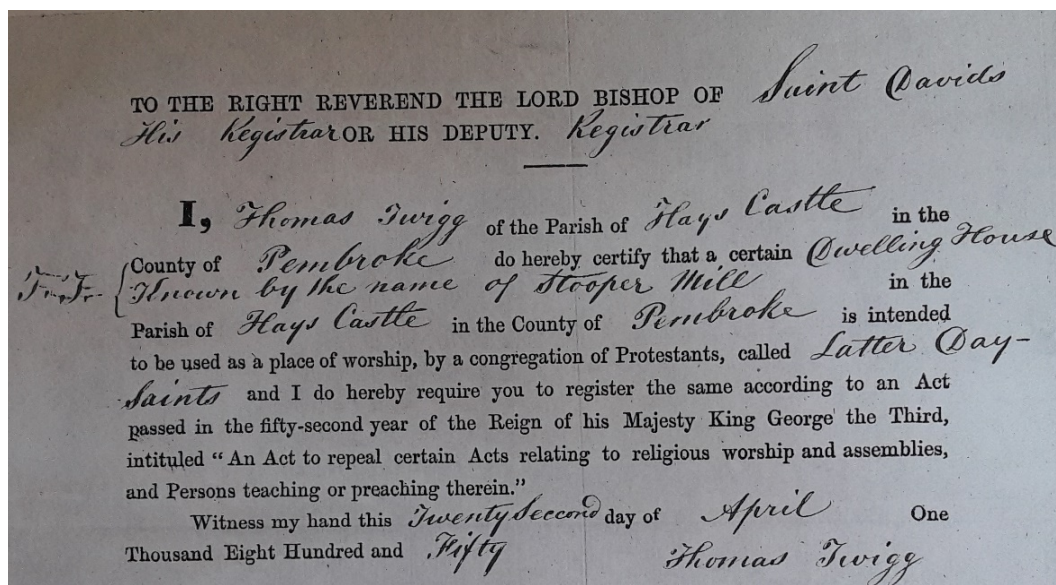 TO THE RIGHT REVEREND THE LORD BISHOP OF Saint Davids
His Registrar OR HIS DEPUTY. Registrar
I, Thomas Twigg of the Parish of Hays Castle in the
County of Pembroke do hereby certify that a certain Dwelling House
Known by the name of Stooper Mill in the
Parish of Hays Castle in the County of Pembroke is intended
to be used as a place of worship, by a congregation of Protestants, called Latter Day-
Saints and I do hereby require you to register the same according to an Act
passed in the fifty-second year of the Reign of his Majesty King George the Third,
intituled “An Act to repeal certain Acts relating to religious worship and assemblies,
and Persons teaching or preaching therein.”
Witness my hand this Twenty Second day of April One
Thousand Eight Hundred and Fifty
Thomas Twigg